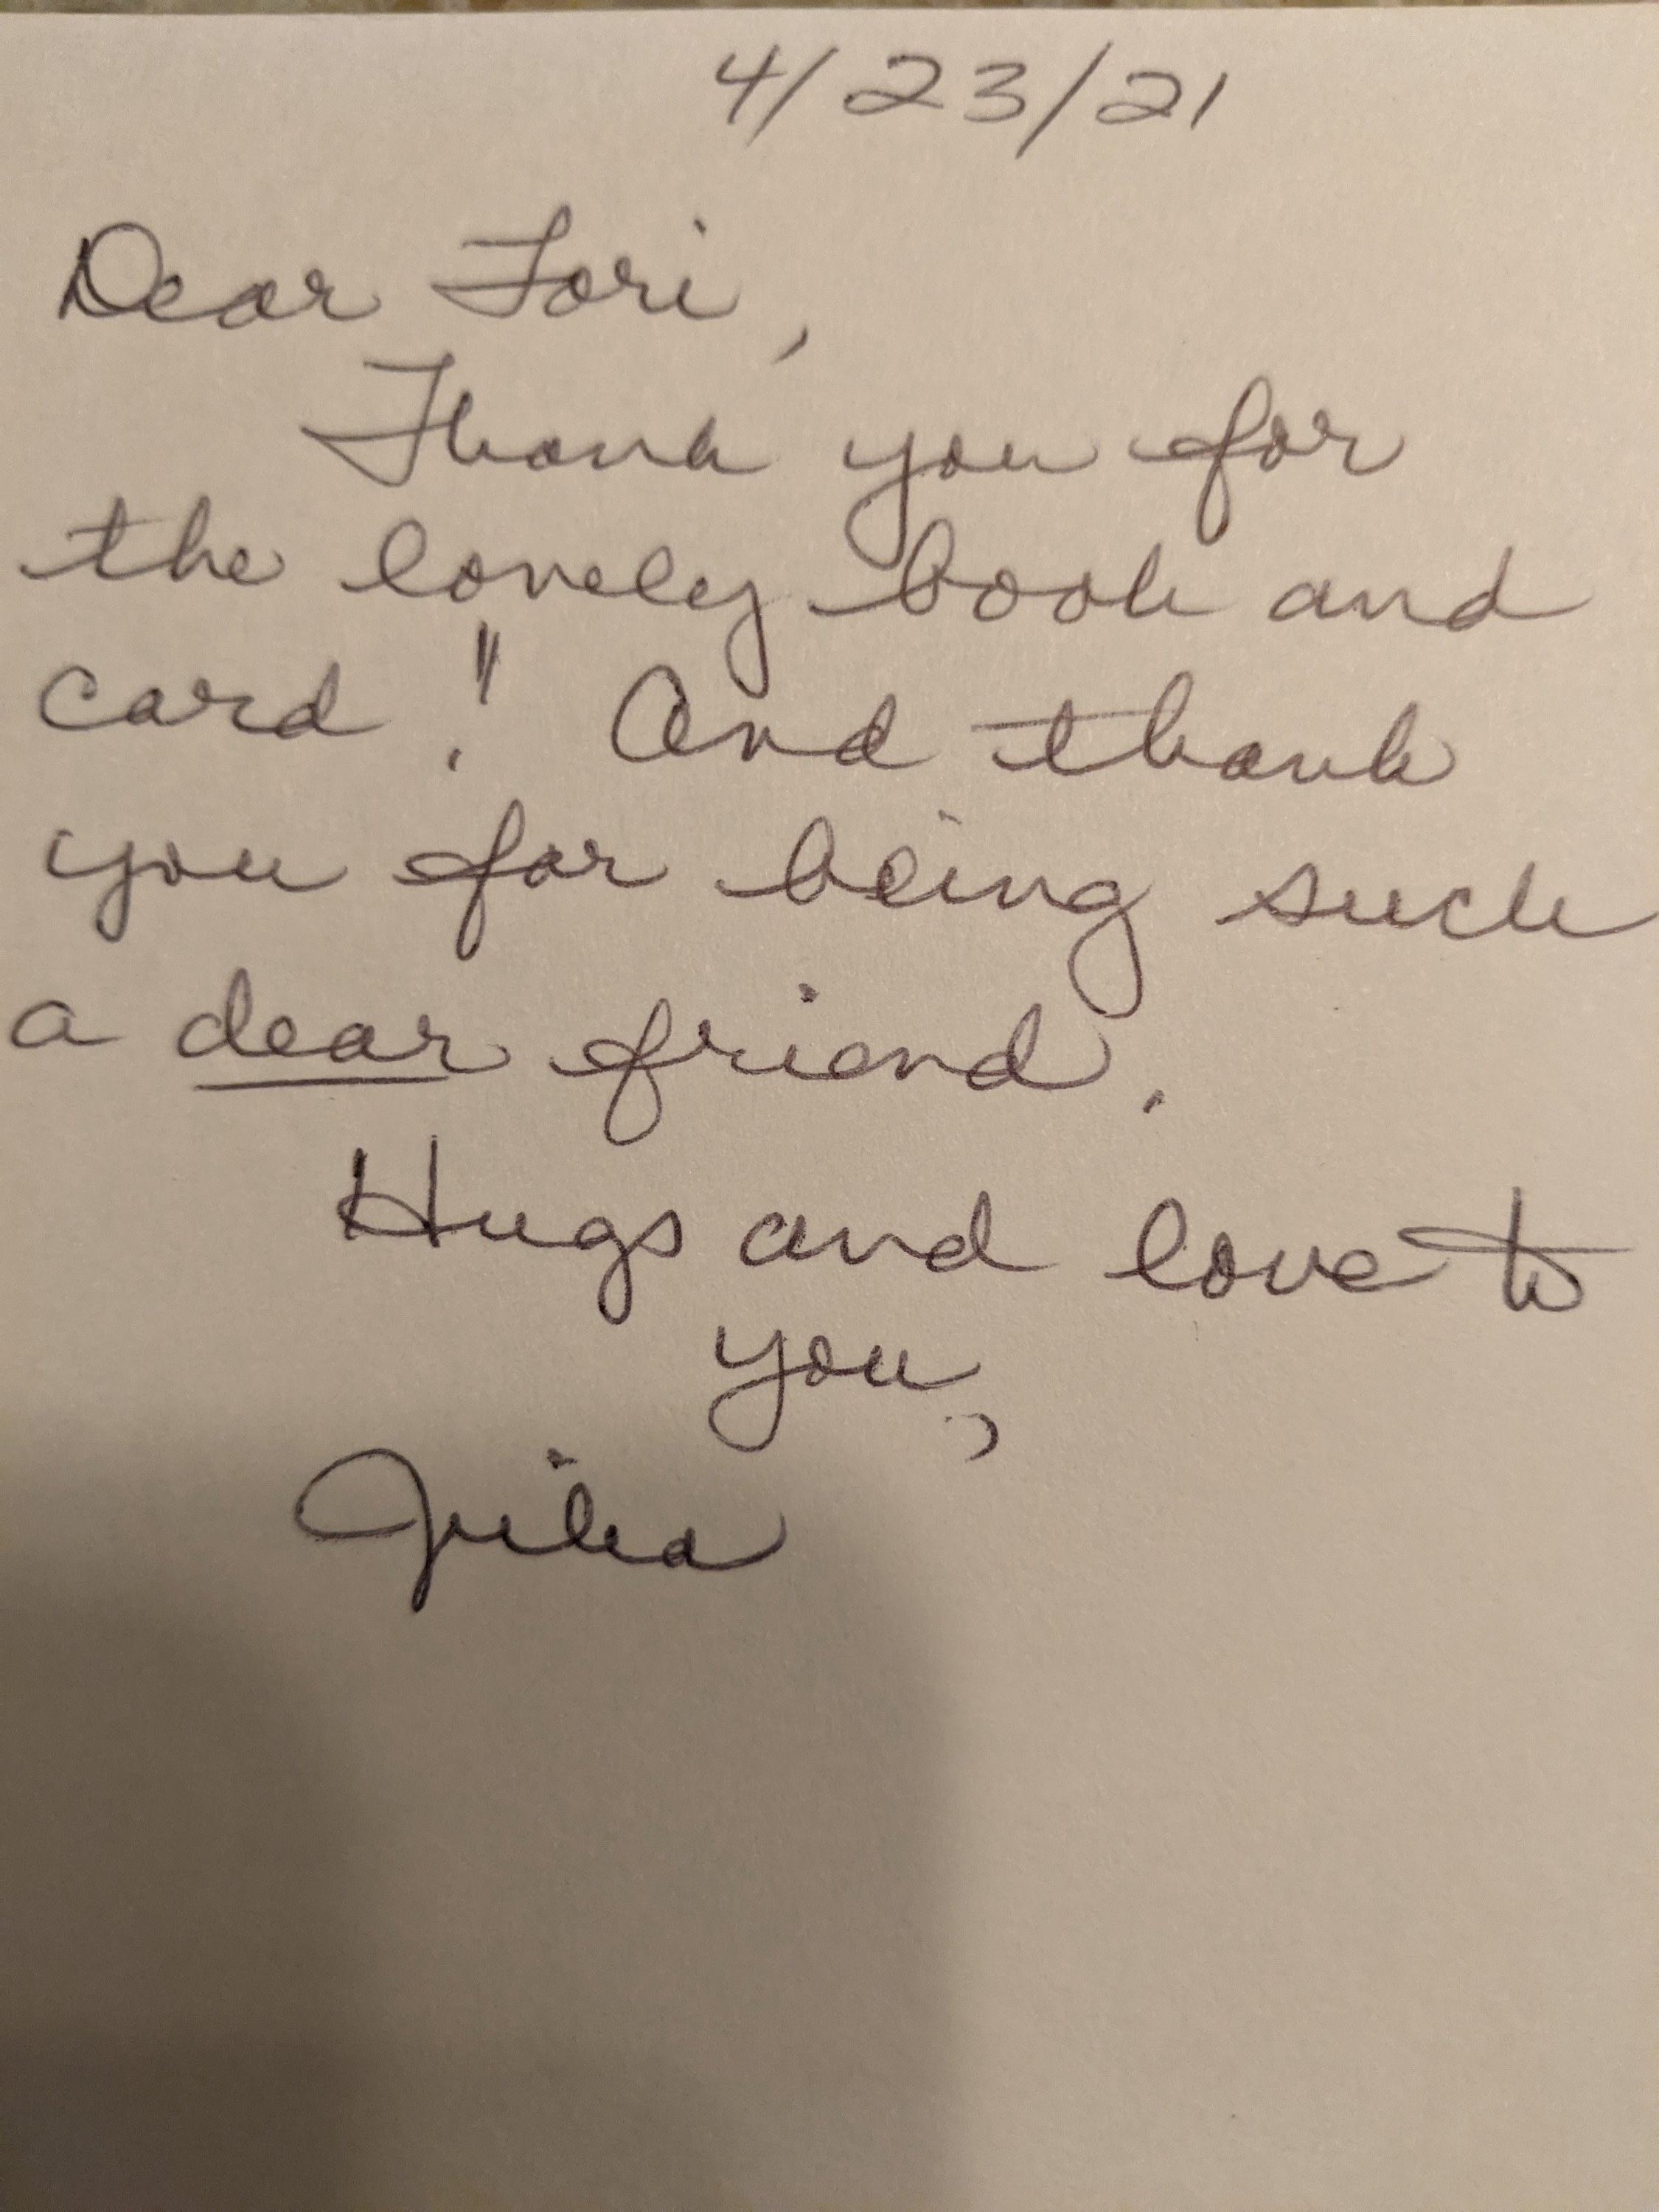 4/23/21
Dear Lori,
Thank you for
the lovely book and
card!! And thank
you for being such
a dear friend.
Hugs and love to
you,
Julia